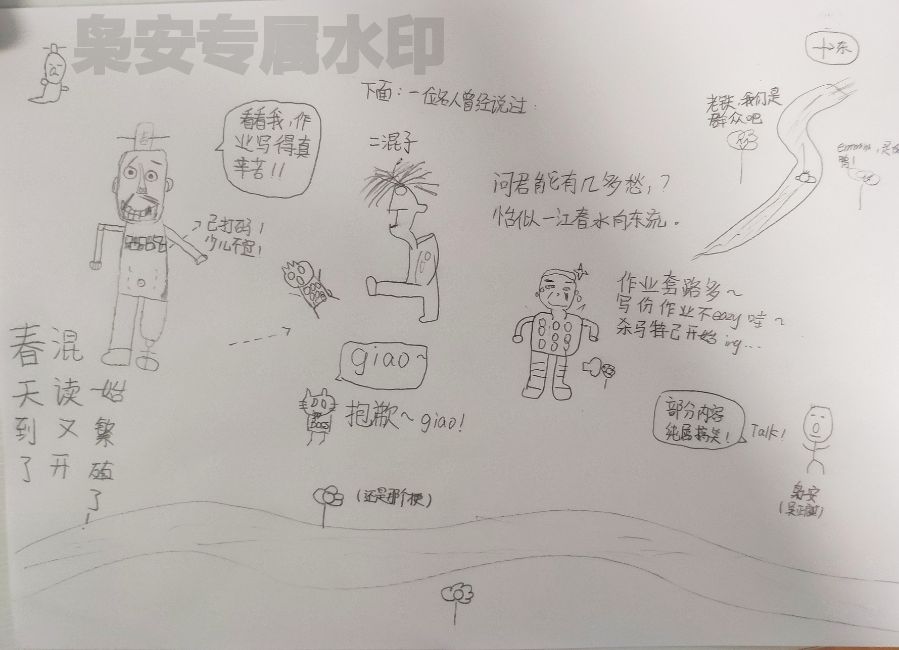 枭安专属水印
十东
下面：一位名人曾经说过：
老铁，我们是
群众吧
看看我，作
业写得真
辛苦！！
二混子
问君能有几多愁，？
恰似一江春水向东流。
已打码！
少儿不宜！
作业套路多~
写份作业不eazy哇~
杀马特已开始ing...
giao~
抱歉~giao！
春天到了
混读又开
始繁殖了！
部分内容
纯属搞笑！
Talk！
枭安
（还是那个梗）